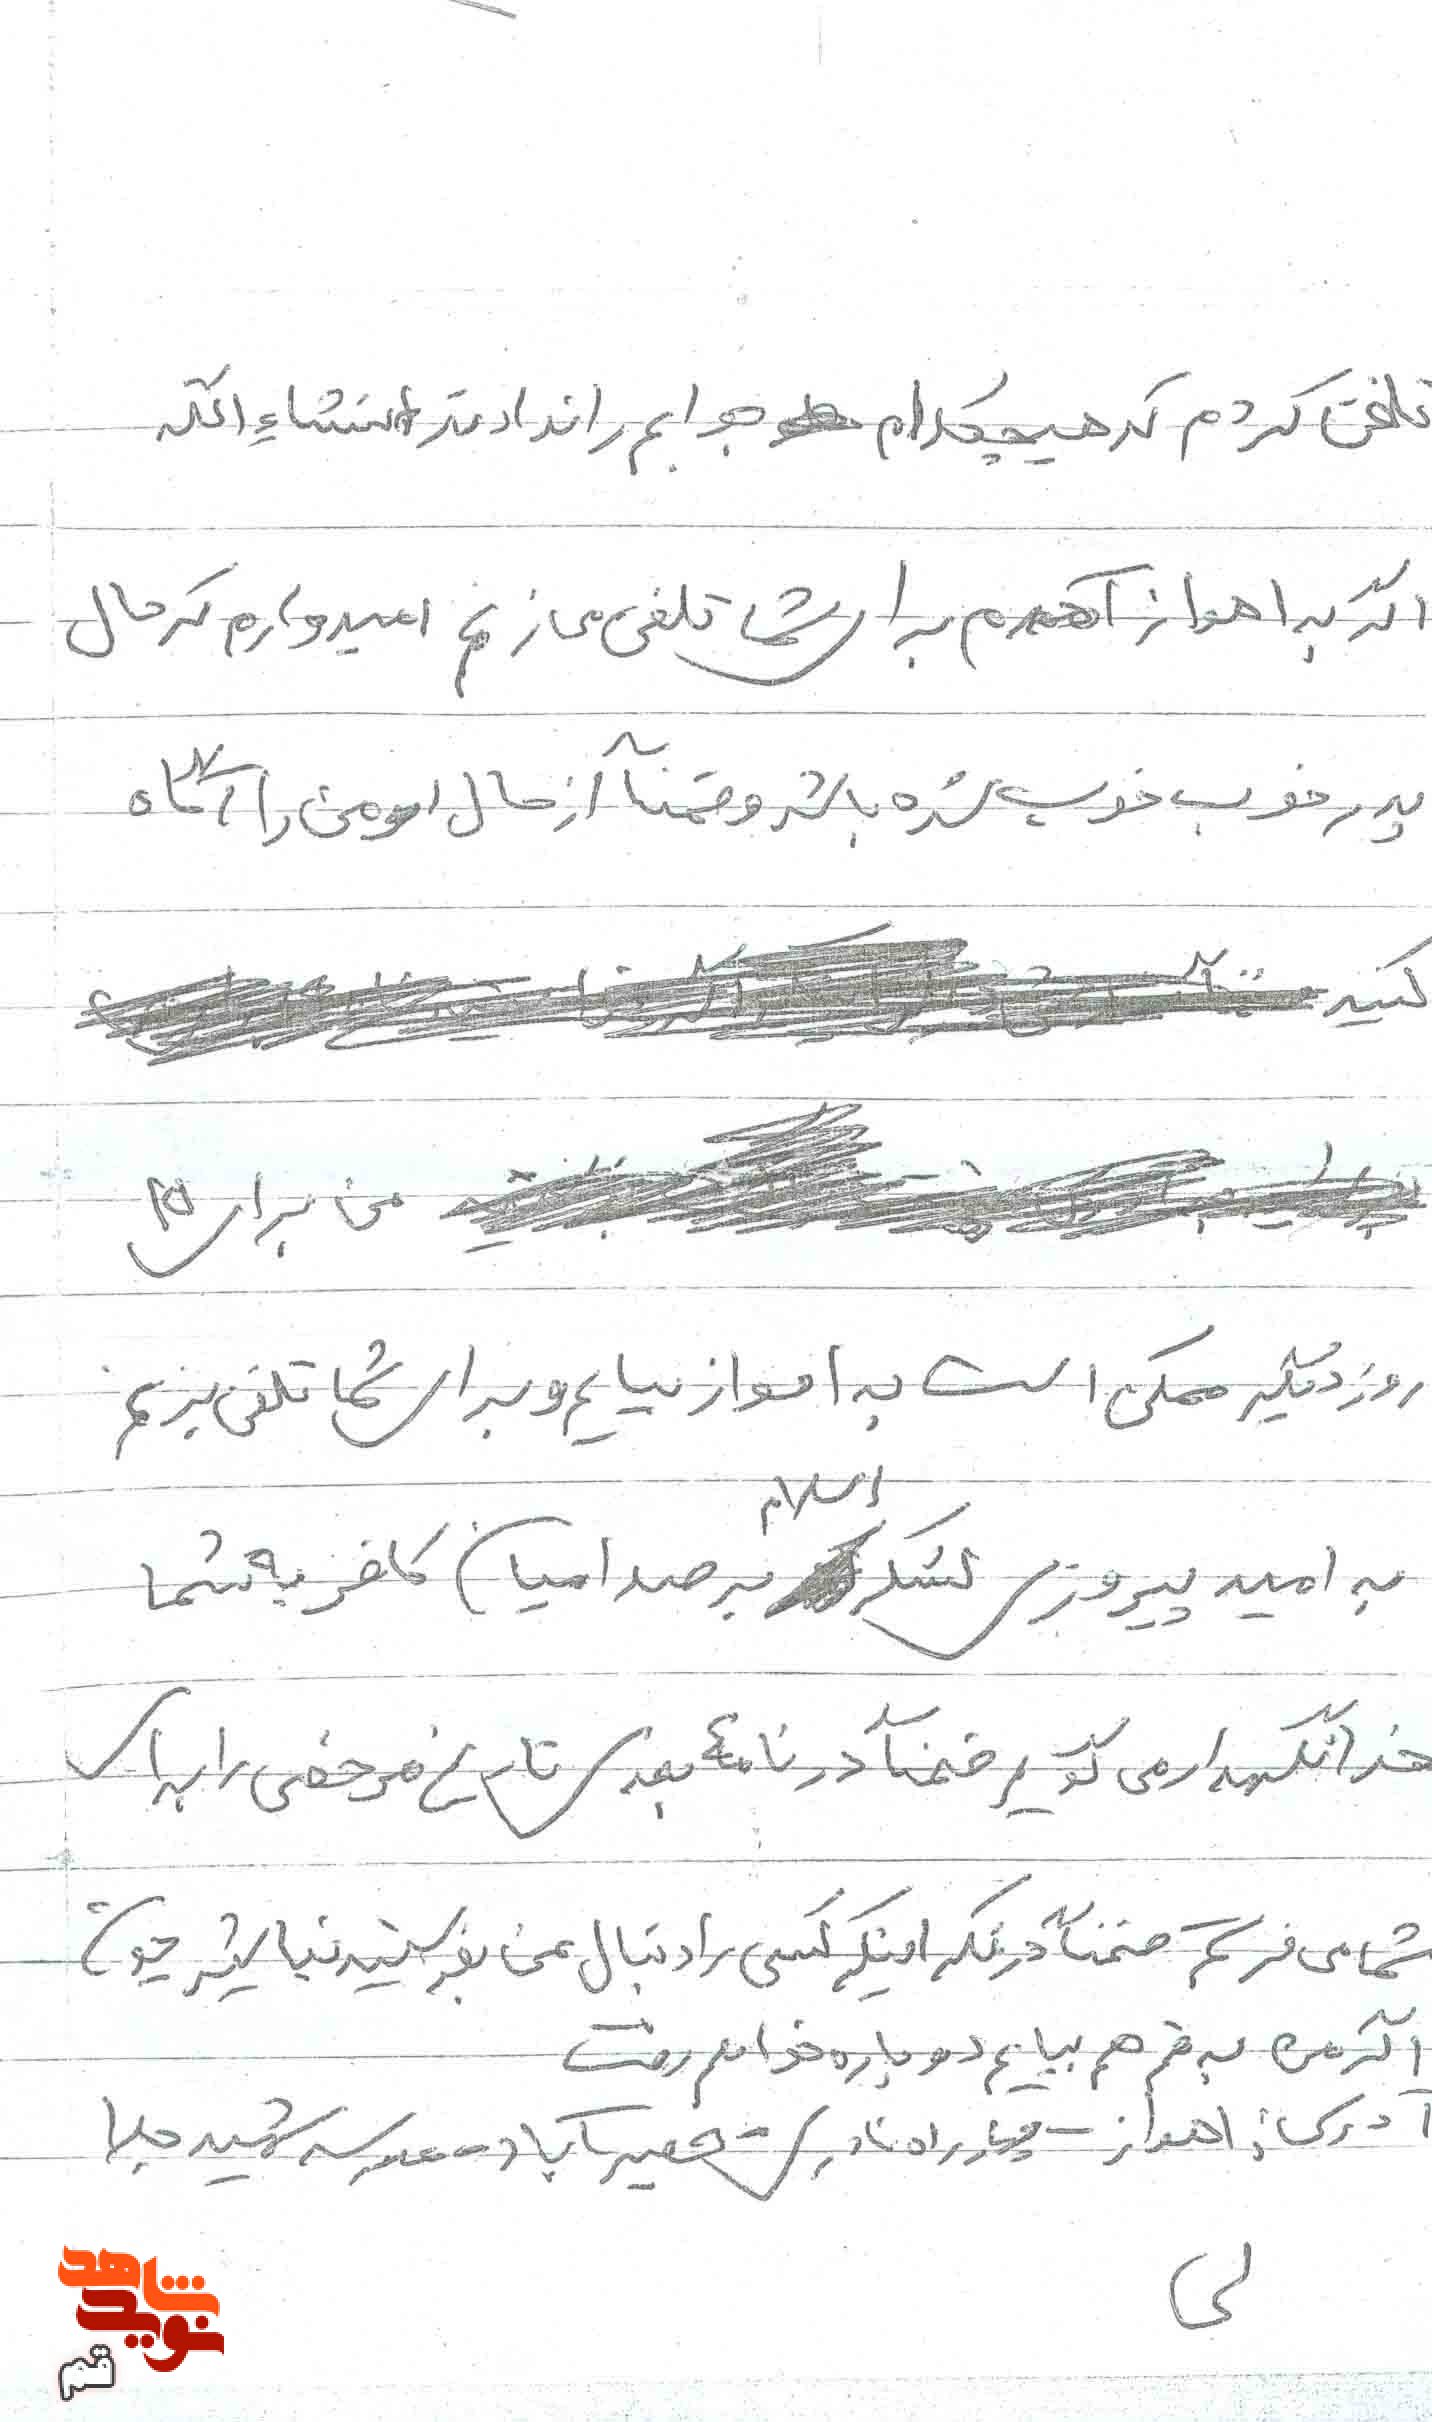 تلفن کردم که هیچکدام جوابم را ندادند انشاء الله
اگر به اهواز آمدم برای شما تلفن می زنم امیدوارم که حال
پدر خوب خوب شده باشد و ضمناً از حال او من را آگاه
کنید
من برای ۲۵
روز دیگر ممکن است به اهواز بیایم و برای شما تلفن بزنم
اسلام
به امید پیروزی لشکر بر صدامیان کافر به شما
خدانگهدار می گویم ضمناً در نامهٔ بعدی تاریخ مرخصی را برای
شما می فرستم ضمناً در فکر اینکه کسی را دنبال من بفرستید نباشید چون
اگر من به قم هم بیایم دوباره خواهم رفت
آدرس: اهواز - چهارراه نادری - حصیرآباد - مدرسه شهید جلا
لی
شاهد
نوید
قم